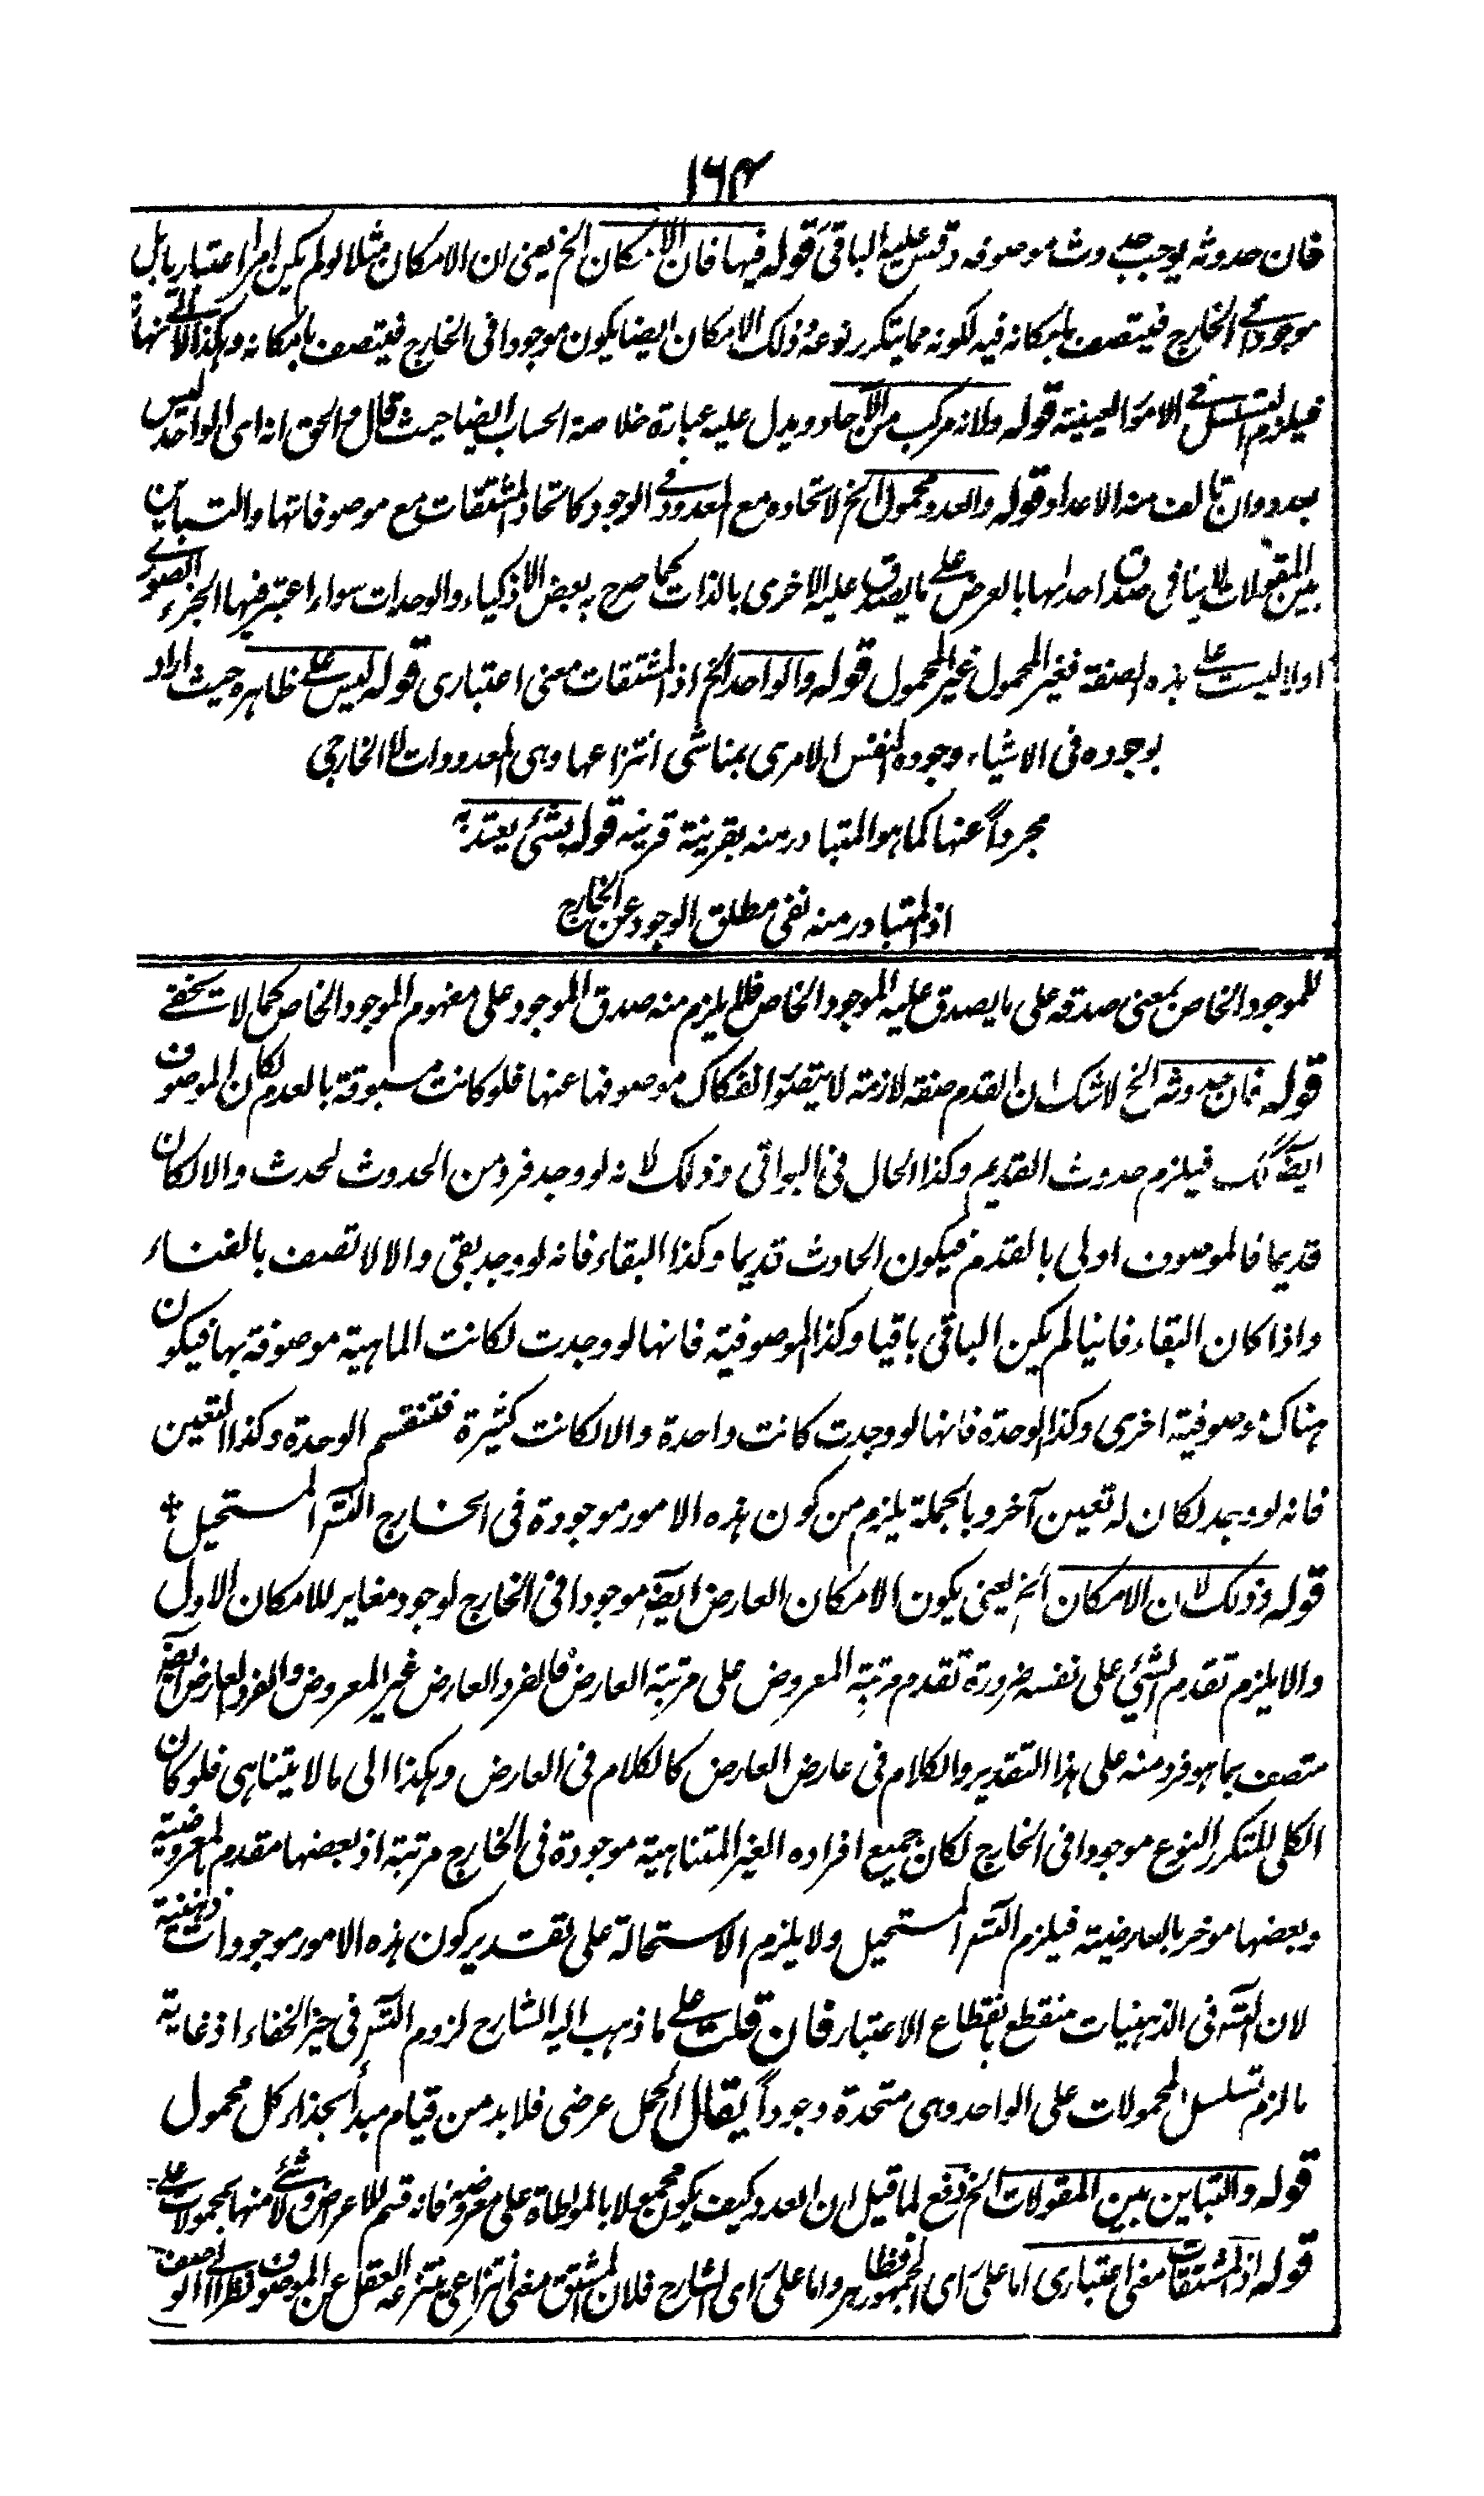 ١٦٤
فان حدوثه يوجب حدوث موصوفه وقس عليه الباقى قوله فيها فان الامكان الخ يعنى ان الامكان مثلا لو لم يكن امرا اعتباريا بل
موجودا فى الخارج فيتصف بامكانه فيه لكونه مما يتكرر نوعه وذلك الامكان ايضا يكون موجودا فى الخارج فيتصف بامكانه وهكذا الى لا نهاية
فيلزم التسلسل فى الامور العينية قوله ولانه مركب من الآحاد ويدل عليه عبارة خلاصة الحساب ايضا حيث قال والحق انه اى الواحد ليس
بعدد وان تألف منه الاعداد قوله والعدد محمول الخ لاتحاده مع المعدود فى الوجود كاتحاد المشتقات مع موصوفاتها والتباين
بين المقولات لا ينافى صدق احدلها بالعرض على ما يصدق عليه الاخرى بالذات كما صرح به بعض الاذكياء والوحدات سواء اعتبر فيها الجزء الصورى
اولا ليست على هذه الصفة فغير المحمول غير المحمول قوله والواحد الخ اذ المشتقات معنى اعتبارى قوله ليس على ظاهره حيث اراد
بوجوده فى الاشياء وجوده النفس الامرى بمناشى انتزاعها وهى المعدودات لا الخارجى
مجرداً عنها كما هو المتبادر منه بقرينة قرينه قوله بشئ يعتد به
اذ المتبادر منه نفى مطلق الوجود عن الخارج
للموجود الخاص بمعنى صدقه على ما يصدق عليه الموجود الخاص فلا يلزم منه صدق الموجود على مفهوم الموجود الخاص كما لا يخفى
قوله فان حدوثه الخ لا شك ان القدم صفة لازمة لا يتصور انفكاك موصوفها عنها فلو كانت مسبوقة بالعدم لكان الموصوف
ايضاً كك فيلزم حدوث القديم وكذا الحال فى البواقى وذلك لانه لو وجد فرد من الحدوث لحدث والا لكان
قديما فالموصوف اولى بالقدم فيكون الحادث قديما وكذا البقاء فانه لو وجد بقى والا لاتصف بالفناء
واذا كان البقاء فانيا لم يكن الباقى باقيا وكذا الموصوفية فانها لو وجدت لكانت الماهية موصوفة بها فيكون
هناك موصوفية اخرى وكذا الوحدة فانها لو وجدت كانت واحدة والا لكانت كثيرة فتنقسم الوحدة وكذا التعين
فانه لو وجد لكان له تعين آخر وبالجملة يلزم من كون هذه الامور موجودة فى الخارج التسر المستحيل
قوله وذلك لان الامكان الخ يعنى يكون الامكان العارض ايضاً موجودا فى الخارج لوجود مغاير للامكان الاول
والا يلزم تقدم الشئ على نفسه ضرورة تقدم مرتبة المعروض على مرتبة العارض فالفرد العارض غير المعروض والفرد العارض ايضاً
متصف بما هو فرد منه على هذا التقدير والكلام فى عارض العارض كالكلام فى العارض وهكذا الى ما لا يتناهى فلو كان
الكلى المتكرر النوع موجودا فى الخارج لكان جميع افراده الغير المتناهية موجودة فى الخارج مرتبة اذ بعضها مقدم بالمعروضية
وبعضها موخر بالعارضية فيلزم التسر المستحيل ولا يلزم الاستحالة على تقدير كون هذه الامور موجودات ذهنية
لان التسر فى الذهنيات منقطع بانقطاع الاعتبار فان قلت على ما ذهب اليه الشارح لزوم التسر فى حيز الخفاء اذ غاية
ما لزم تسلسل المحمولات على الواحد وهى متحدة وجوداً يقال الحمل عرضى فلا بد من قيام مبدأ بحذاء كل محمول
قوله والتباين بين المقولات الخ دفع لما قيل ان العدد كيف يكون محمولا بالمواطاة على معروضه فانه قسم للاعراض ولا شئ منها بمحمولات على
قوله اذ المشتقات معنى اعتبارى اما على راى الجمهور فظاهر واما على راى الشارح فلان المشتق معنى انتزاعى ينتزعه العقل عن الموصوف نظرا الى الوصف